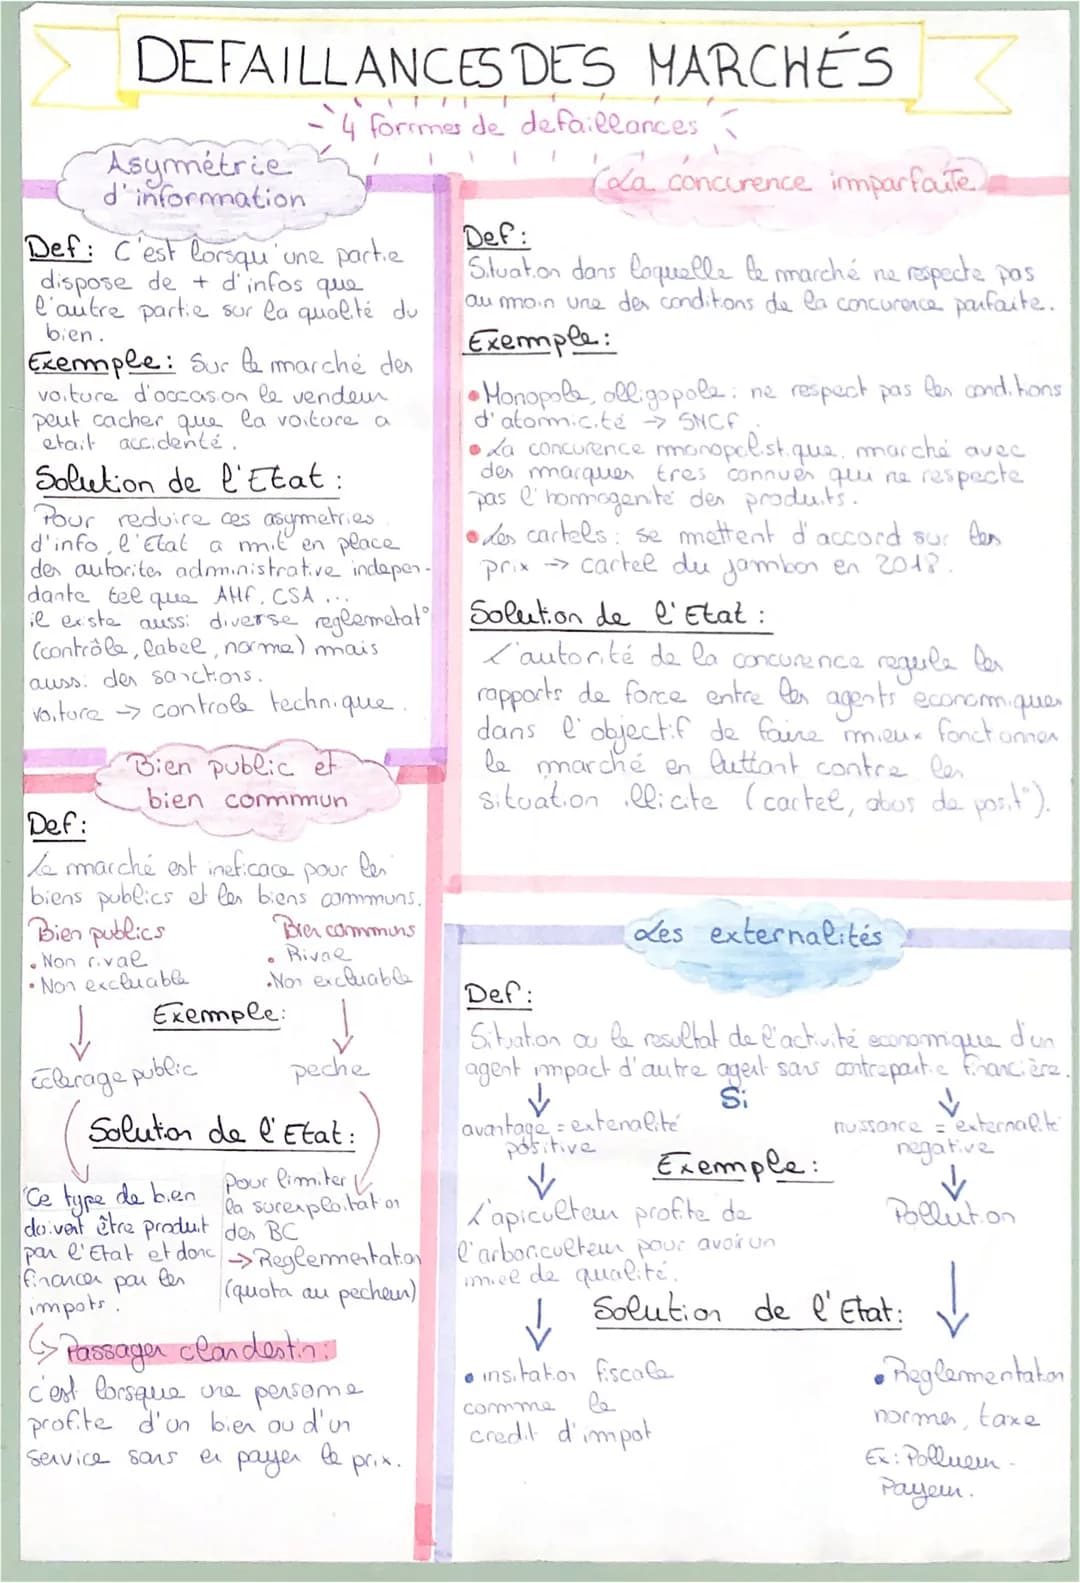 DEFAILLANCES DES MARCHÉS
4 formes de defaillances
Asymétrie
d'information
Def: C'est lorsqu'une partie
dispose de + d'infos que
l'autre partie sur la qualité du
bien.
Exemple: Sur le marché des
voiture d'occasion le vendeur
peut cacher que la voiture a
etait accidenté.
Solution de l'Etat:
Pour reduire ces asymetries
d'info, l'Etat a mit en place
des autorites administrative indepen-
dante tel que AMF, CSA ...
il existe aussi diverse reglemetat°
(contrôle, label, norme) mais
aussi des sanctions.
voiture → controle technique.
Bien public et
bien commun
Def:
Le marché est ineficace pour les
biens publics et les biens communs.
Bien publics
• Non rival
• Non excluable
Bien communs
• Rival
• Non excluable
Exemple:
Eclerage public
peche
Solution de l'Etat:
Ce type de bien
doivent être produit
par l'Etat et donc
financer par les
impots.
pour limiter
la surexploitation
des BC
→ Reglementation
(quota au pecheur)
Passager clandestin:
c'est lorsque une personne
profite d'un bien ou d'un
service sans en payer le prix.
La concurence imparfaite
Def:
Situation dans laquelle le marché ne respecte pas
au moin une des conditions de la concurence parfaite.
Exemple:
• Monopole, olligopole: ne respect pas les conditions
d'atomicité → SNCF.
• La concurence monopolistique, marché avec
des marques tres connues qui ne respecte
pas l'homogenté des produits.
• Les cartels: se mettent d'accord sur les
prix → cartel du jambon en 2018.
Solution de l'Etat:
L'autorité de la concurence regule les
rapports de force entre les agents economiques
dans l'objectif de faire mieux fonctionner
le marché en luttant contre les
situation illicite (cartel, abus de posit°).
Les externalités
Def:
Situation ou le resultat de l'activité economique d'un
agent impact d'autre agent sans contrepartie financière.
Si
avantage = extenalité
positive
nuissance = externalité
negative
Exemple:
L'apiculteur profite de
l'arboriculteur pour avoir un
miel de qualité.
Pollution
Solution de l'Etat:
• insitation fiscale
comme le
credit d'impot
• Reglementation
normes, taxe
Ex: Pollueur -
Payeur.